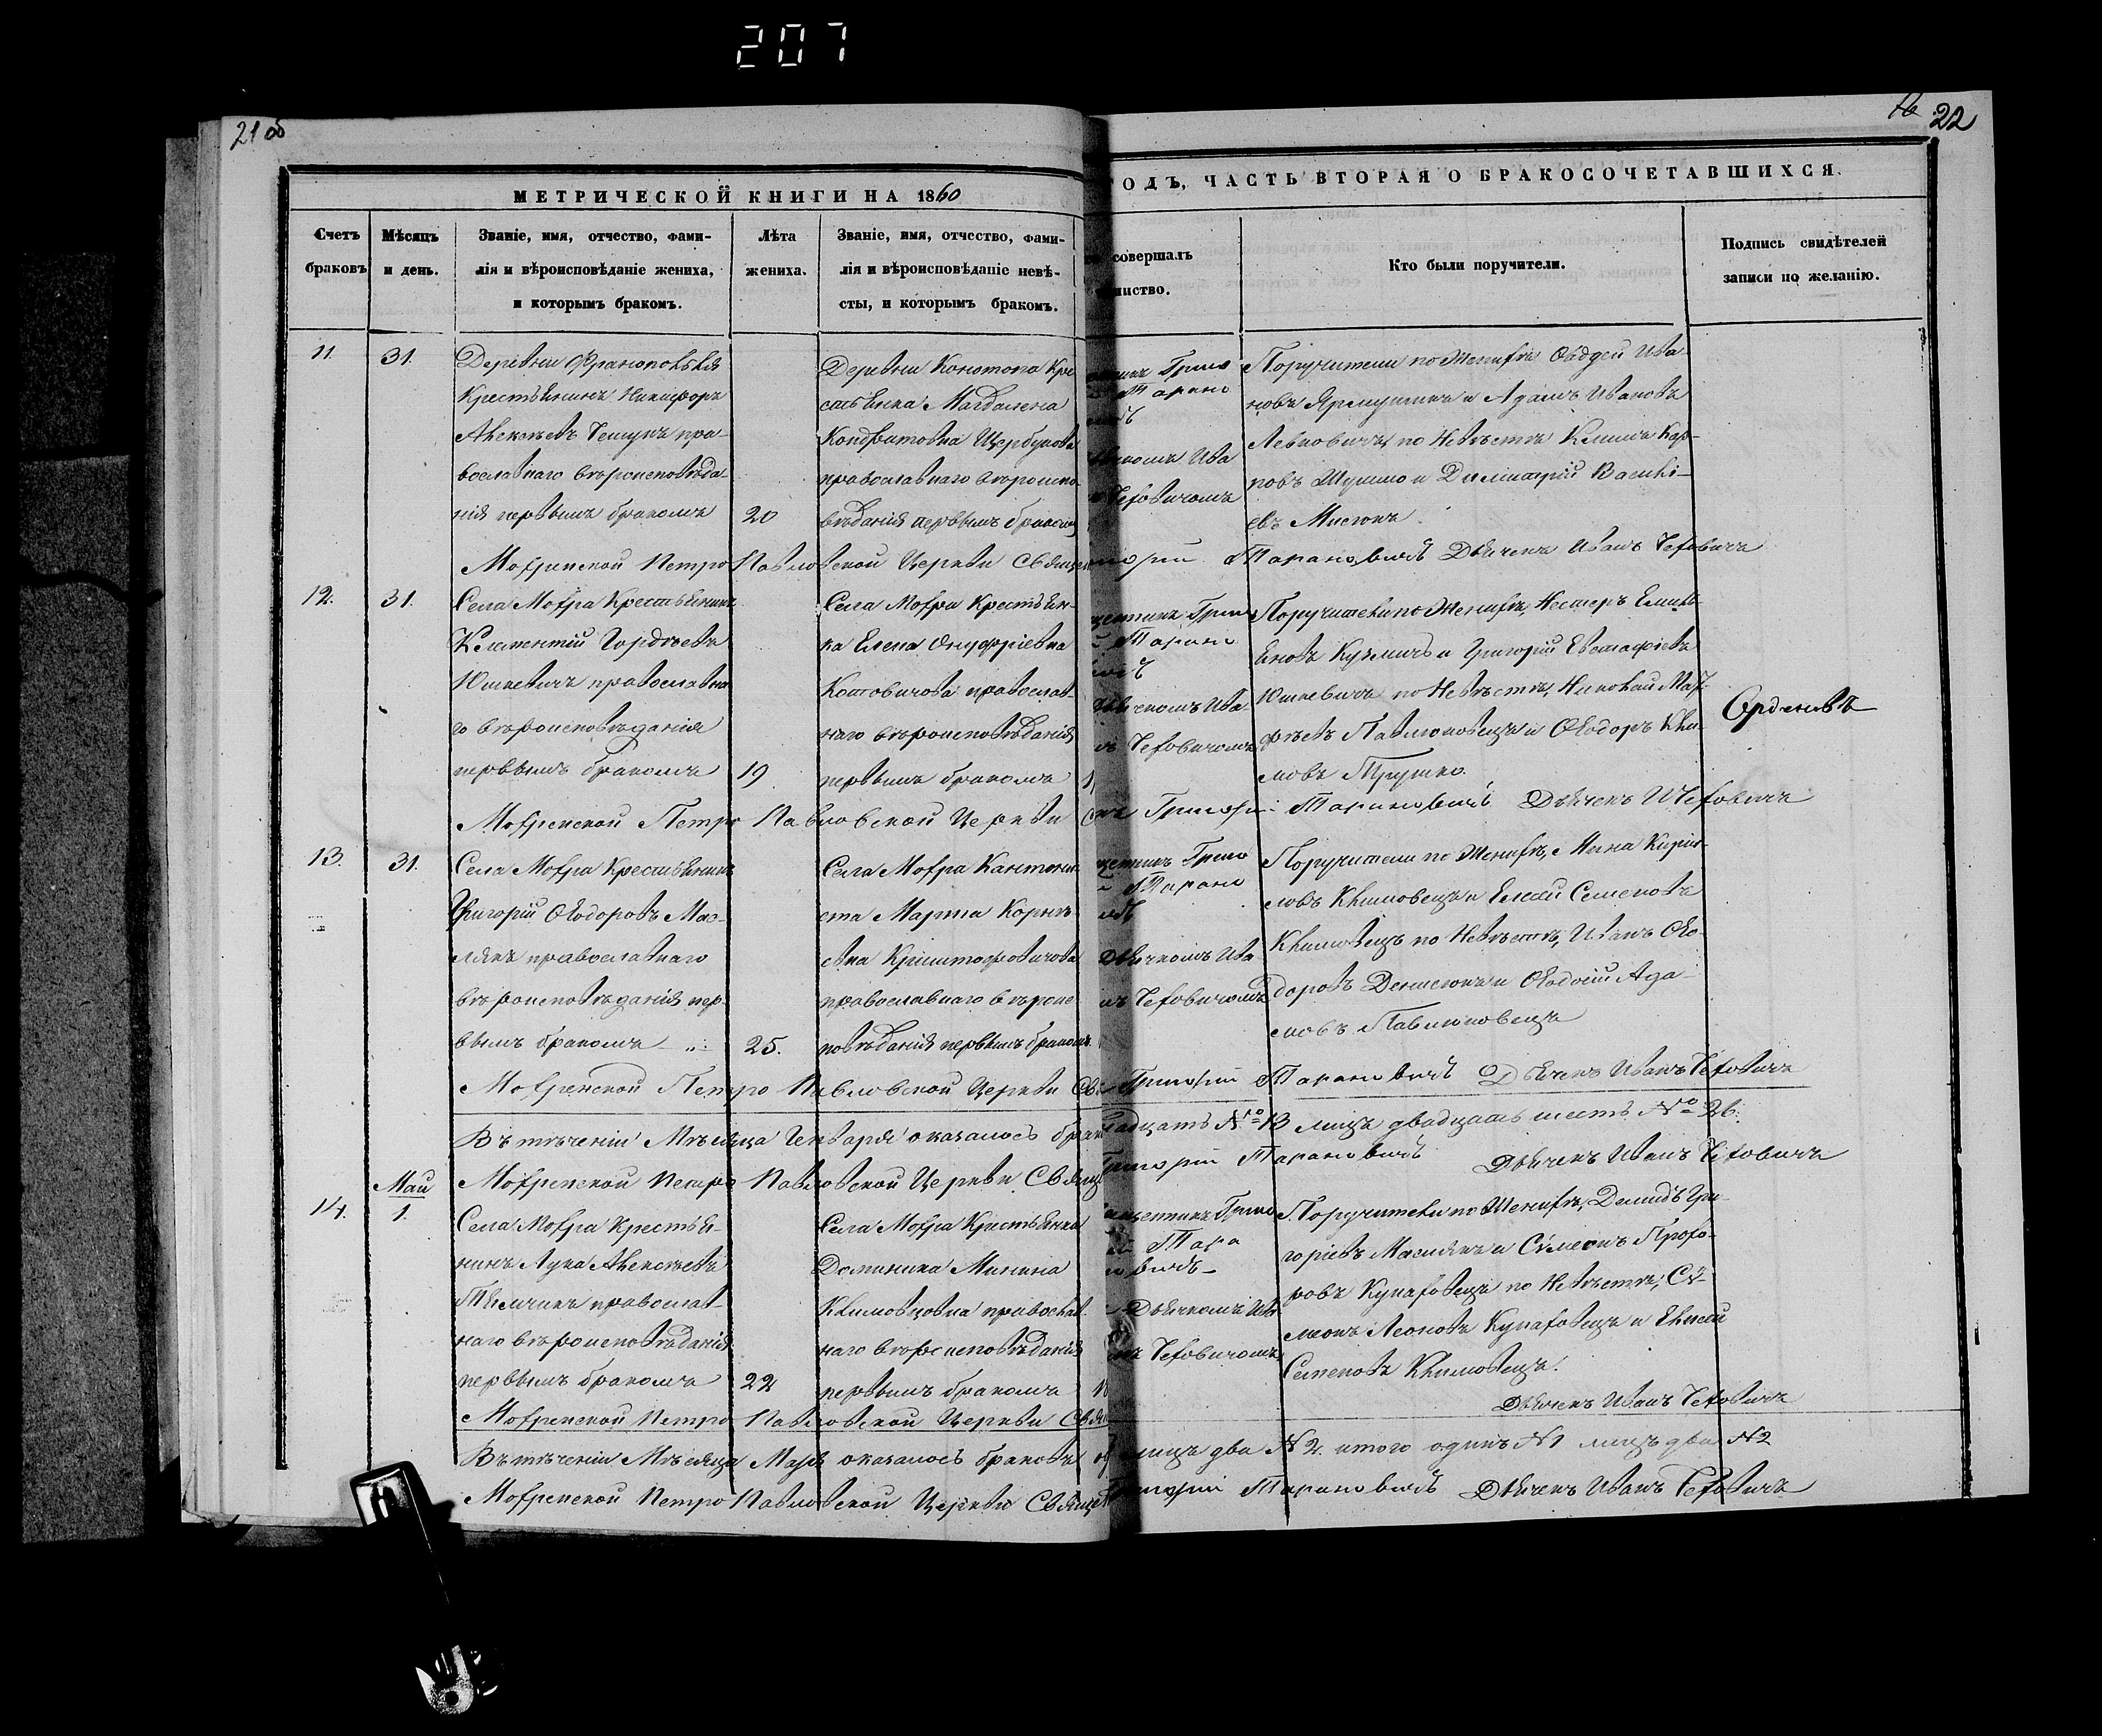 207
21 об
22
МЕТРИЧЕСКОЙ КНИГИ НА 1860
ОДЪ, ЧАСТЬ ВТОРАЯ О БРАКОСОЧЕТАВШИХСЯ.
Счетъ
браковъ
Мѣсяцъ
и день.
Званіе, имя, отчество, фами-
лія и вѣроисповѣданіе жениха,
и которымъ бракомъ.
Лѣта
жениха.
Званіе, имя, отчество, фами-
лія и вѣроисповѣданіе невѣ-
сты, и которымъ бракомъ.
совершалъ
инство.
Кто были поручители.
Подпись свидѣтелей
записи по желанію.
11.
31.
Деревни
Крестьянинъ Никифоръ
Алексѣевъ пра-
вославнаго вѣроисповѣда-
нія первымъ бракомъ
20
Деревни Конотопа Кре
стьянка Магдалена
Кондратовна
православнаго вѣроиспо
вѣданія первымъ бракомъ
Григо
Тарано
Ива
Чеховичомъ
Поручители по Женихѣ Овдѣй Ива
новъ и Адамъ Ивановъ
Левковичъ, по Невѣстѣ Климъ Кар-
повъ и Димитрій Василі-
евъ Мисюкъ
Мохренской Петро Павловской Церкви Свяще
Тарановичъ Дьячекъ Иванъ Чеховичъ
12.
31.
Села Мохра Крестьянинъ
Климентій Гордѣевъ
Юшкевичъ православна
го вѣроисповѣданія
первымъ бракомъ
19
Села Мохра Крестьян-
ка Елена Онуфріевна
Котовичова православ-
наго вѣроисповѣданія
первымъ бракомъ
Григо
Тарано
Дьячкомъ Ива
Чеховичомъ
Поручители по Женихѣ, Нестеръ Емиль
яновъ Кузмичъ и Григорій Евстафіевъ
Юшкевичъ по Невѣстѣ, Николай Мат-
фѣевъ Павлюковецъ и Ѳеодоръ Кли-
мовъ Трушко.
Мохренской Петро Павловской Церкви
Григорій Тарановичъ Дьячекъ И Чеховичъ
13.
31.
Села Мохра Крестьянинъ
Григорій Ѳеодоровъ Мас-
лякъ православнаго
вѣроисповѣданія пер-
вымъ бракомъ
25.
Села Мохра Кантони
ста Марта Корнѣ-
евна Криштофовичова
православнаго вѣроис
повѣданія первымъ бракомъ
Григо
Тарано
Дьячкомъ Ива
Чеховичомъ
Поручители по Женихѣ, Мина Кирил-
ловъ Климовецъ и Елисей Семеновъ
Климовецъ по Невѣстѣ, Иванъ Ѳео-
доровъ Денисюкъ и Ѳеодосій Ада-
мовъ Павлюковецъ
Мохренской Петро Павловской Церкви Свя
Григорій Тарановичъ Дьячекъ Иванъ Чеховичъ
Въ теченіи Мѣсяца Генваря оказалось брако
надцать № 13 лицъ двадцать шесть № 26.
Мохренской Петро Павловской Церкви Свящ
Григорій Тарановичъ Дьячекъ Иванъ Чеховичъ
14.
Маи
1.
Села Мохра Крестья-
нинъ Лука Алексѣевъ
православ-
наго вѣроисповѣданія
первымъ бракомъ
22
Села Мохра Крестьянка
Доминика Минина
Климовцовна православ-
наго вѣроисповѣданія
первымъ бракомъ
Григо
Тара
Дьячкомъ Ива
Чеховичомъ
Поручители по Женихѣ, Демидъ Гри-
горіевъ Маслякъ и Сѵмеонъ Прохо-
ровъ Кунаховецъ по Невѣстѣ, Сѵ-
меонъ Леоновъ Кунаховецъ и Елисей
Семеновъ Климовецъ.
Мохренской Петро Павловской Церкви Свя
Дьячекъ Иванъ Чеховичъ
Въ теченіи Мѣсяца Мая оказалось браковъ
лицъ два № 2. итого одинъ № 1 лицъ два № 2
Мохренской Петро Павловской Церкви Свяще
Григорій Тарановичъ Дьячекъ Иванъ Чеховичъ